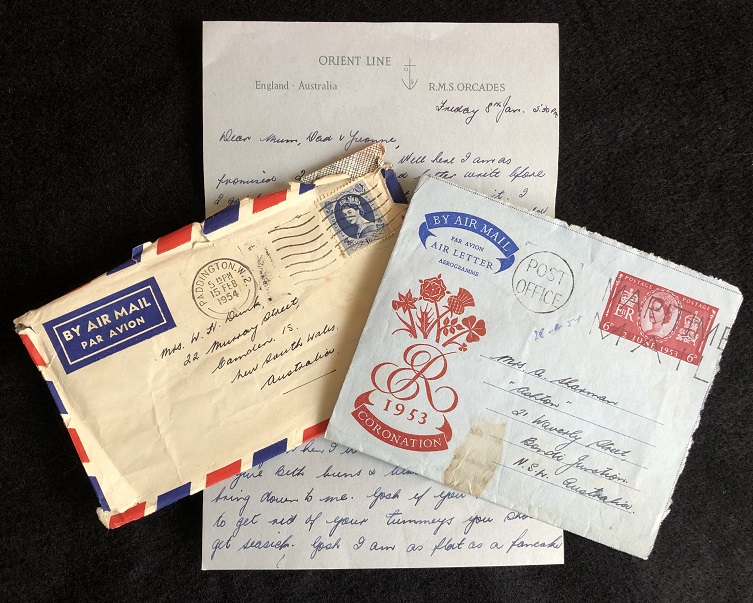 ORIENT LINE
England · Australia
R.M.S. ORCADES
Friday 8th Jan. 5:30 pm
Dear Mum, Dad & Yvonne,
Well here I am as
promised I
letter write before
it. I
PADDINGTON. W.2
5 15 PM
15 FEB
1954
BY AIR MAIL
PAR AVION
Mrs. W. H. Dunk,
22 Murray Street
Camden. 15.
New South Wales.
Australia.
BY AIR MAIL
PAR AVION
AIR LETTER
AEROGRAMME
POST
OFFICE
MARITIME
MAIL
POSTAGE
POSTAGE
E R
6D
2 JUNE 1953
6D
ER
1953
CORONATION
Mrs A Sharman
"Ashton"
21 Waverly Street
Bondi Junction.
N.S.W. Australia.
give Beth buns &
bring down to me. Gosh if you
to get rid of your tummeys you
get seasick. Gosh I am as flat as a pancake